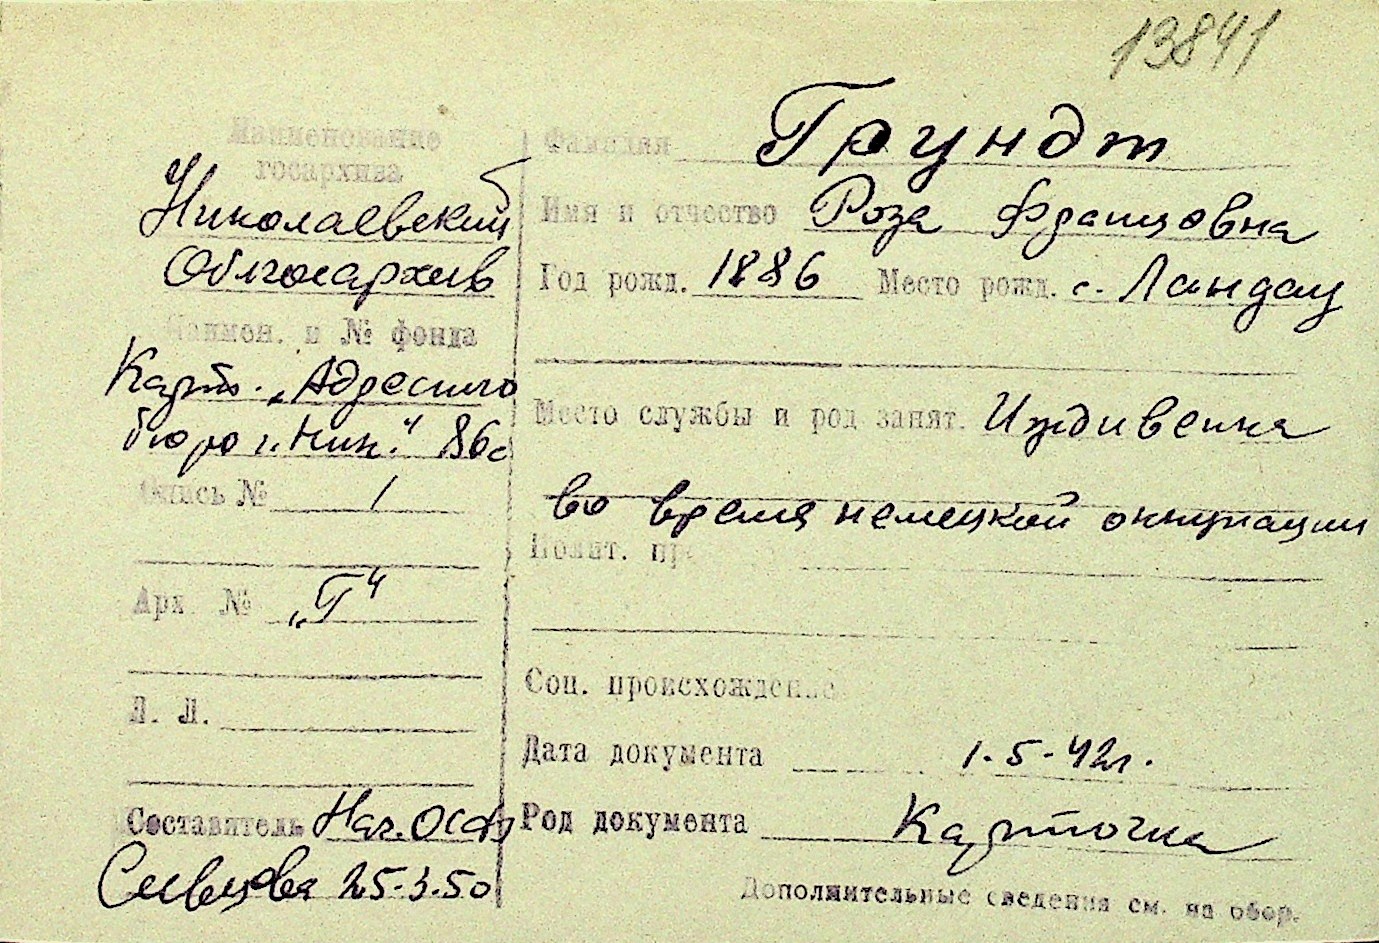 13841
Наименование
госархива
Николаевский
Облгосархив
Наимен. и № фонда
Карт. „Адресного
бюро г. Ник." 86с
Опись № 1
Арх. № „Г"
Л. Л.
Составитель Нач. ОСФ
25-3-50
Фамилия Грундт
Имя и отчество Роза Францовна
Год рожд. 1886 Место рожд. с. Ландау
Место службы и род занят. Иждивенка
во время немецкой оккупации
Полит. пр
Соц. происхождение
Дата документа 1-5-42г.
Род документа Карточка
Дополнительные сведения см. на обор.